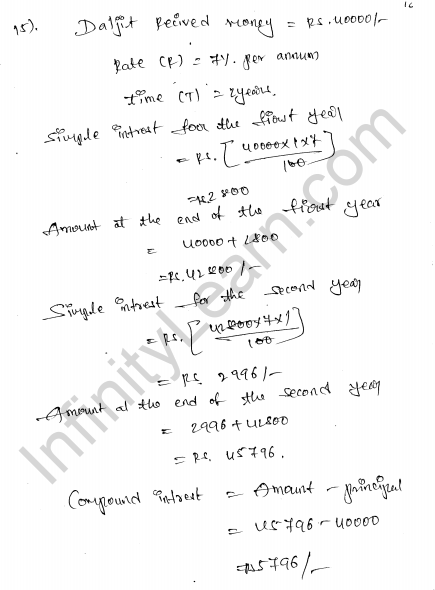 16
15). Daljit Recived money = Rs. 40000/-
Rate (R) = 7%. per annum
time (T) = 2years.
Simple intrest foor the fiowt year
= Rs. [40000×1×7 / 100]
= Rs 2800
Amount at the end of the fiowt year
= 40000 + 2800
= Rs. 42800 /-
Simple intrest for the second year
= Rs. [42800×7×1 / 100]
= Rs. 2996/-
Amount at the end of the second year
= 2996 + 42800
= Rs. 45796.
Compound intrest = Amount - principal
= 45796 - 40000
= Rs 5796/-
InfinityLearn.com